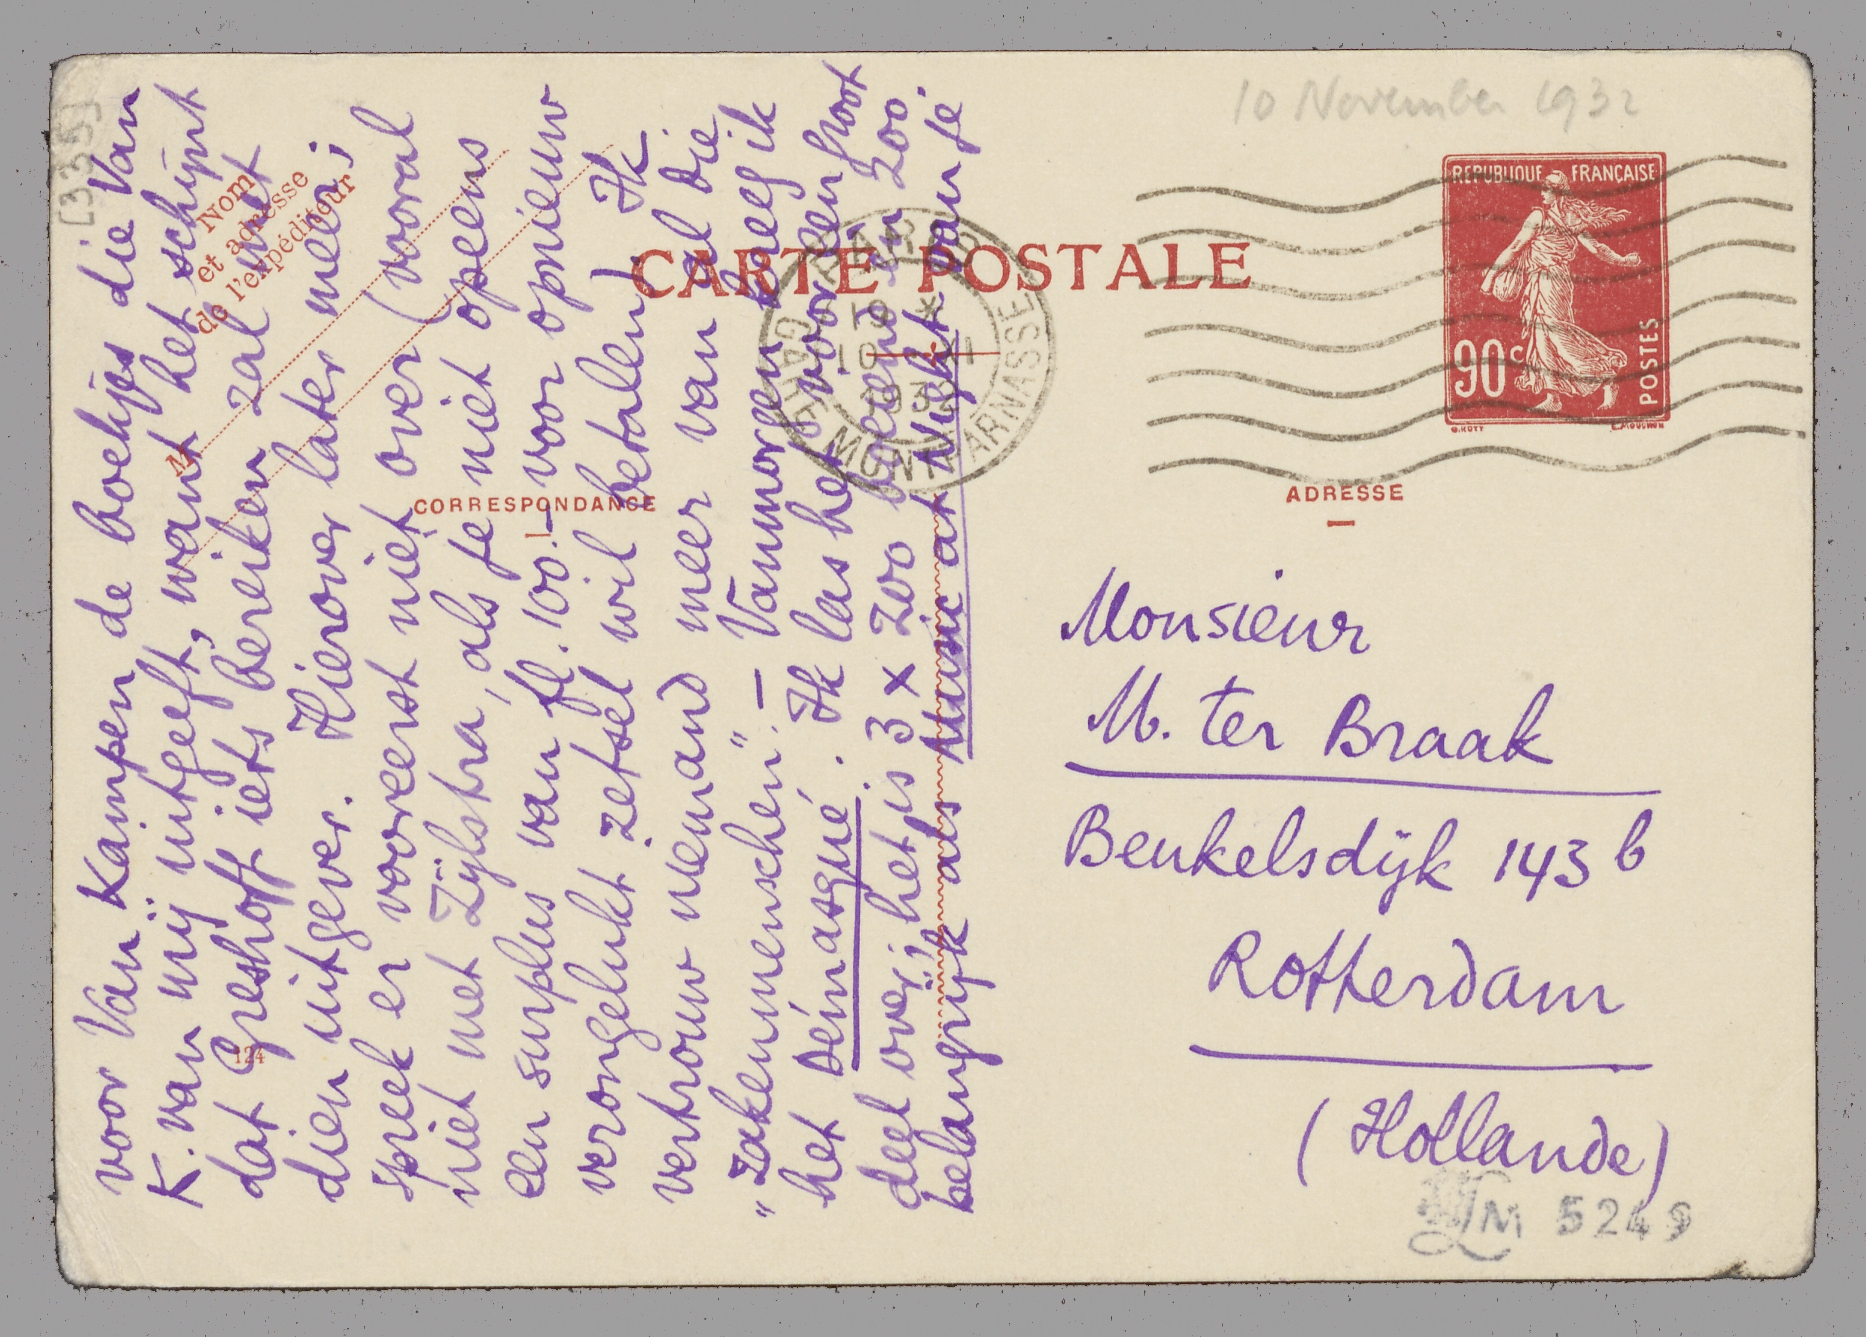 voor Van Kampen de boekjes die Van
K. van mij uitgeeft, want het schijnt
dat Greshoff iets bereiken zal met
dien uitgever. Hierover later meer;
spreek er vooreerst niet over (vooral
niet met Zijlstra, als je niet opeens
een surplus van fl. 100.– voor opnieuw
verongelukt zetsel wil betalen!) Ik
vertrouw niemand meer van al die
"zakenmenschen". – Vanmorgen kreeg ik
het Démasqué. Ik las het voor een groot
deel over; het is 3 x zoo boeiend en zoo
belangrijk als Music at Night van je
10 November 1932
[335]
Nom
et adresse
de l'expéditeur
M
CARTE POSTALE
CORRESPONDANCE
ADRESSE
REPUBLIQUE FRANÇAISE
90 c
POSTES
O. ROTY
E. MOUCHON
PARIS
GARE
MONTPARNASSE
10 XI
1932
Monsieur
M. ter Braak
Beukelsdijk 143 b
Rotterdam
(Hollande)
124
LM 5249